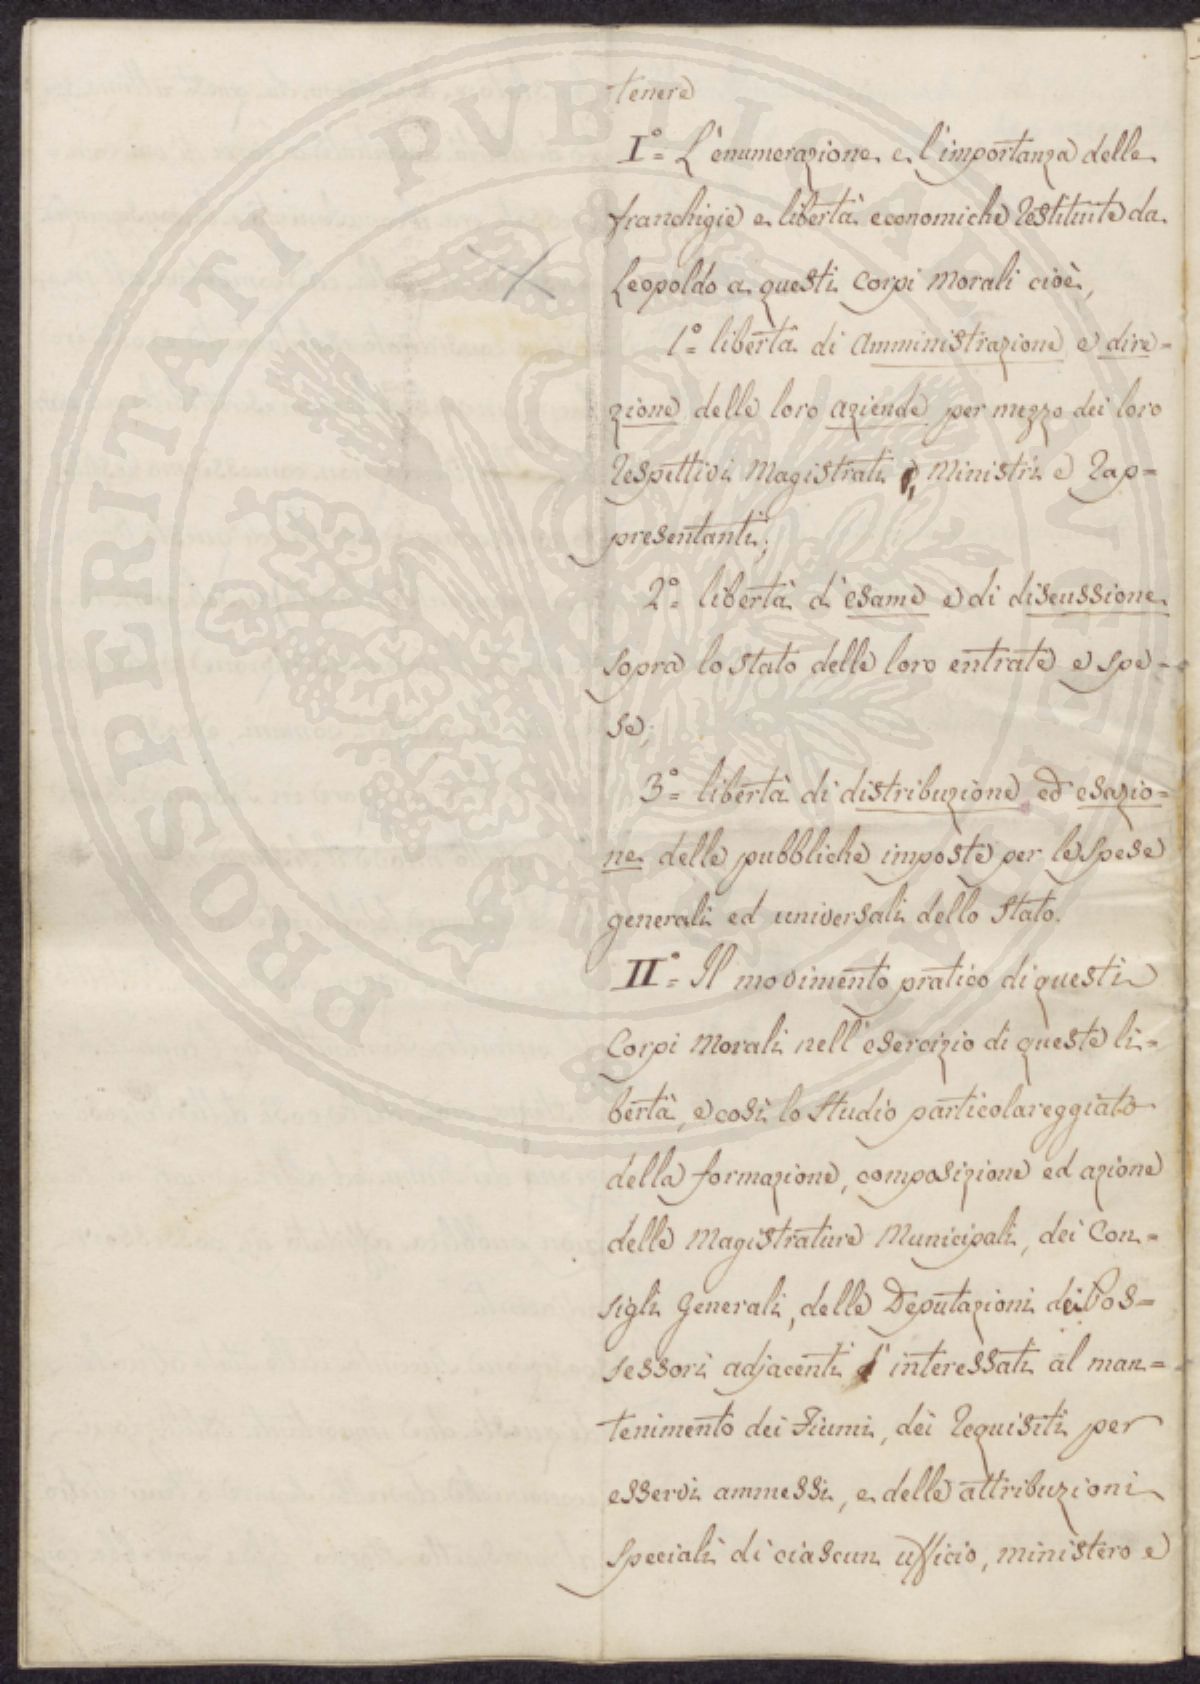 tenere
I°= L'enumerazione e l'importanza delle
franchigie e libertà economiche restituite da
Leopoldo a questi Corpi Morali cioè,
1°= libertà di Amministrazione e dire=
zione delle loro aziende per mezzo dei loro
respettivi Magistrati, Ministri e rap=
presentanti;
2°= libertà d'esame e di discussione
sopra lo stato delle loro entrate e spe=
se;
3°= libertà di distribuzione ed esazio=
ne delle pubbliche imposte per le spese
generali ed universali dello Stato.
II°= Il movimento pratico di questi
Corpi Morali nell'esercizio di queste li=
bertà, e così lo studio particolareggiato
della formazione, composizione ed azione
delle Magistrature Municipali, dei Con=
sigli Generali, delle Deputazioni dei Pos=
sessori adjacenti e interessati al man=
tenimento dei Fiumi, dei requisiti per
esservi ammessi, e delle attribuzioni
speciali di ciascun ufficio, ministero e
PROSPERITATI PVBLICAE